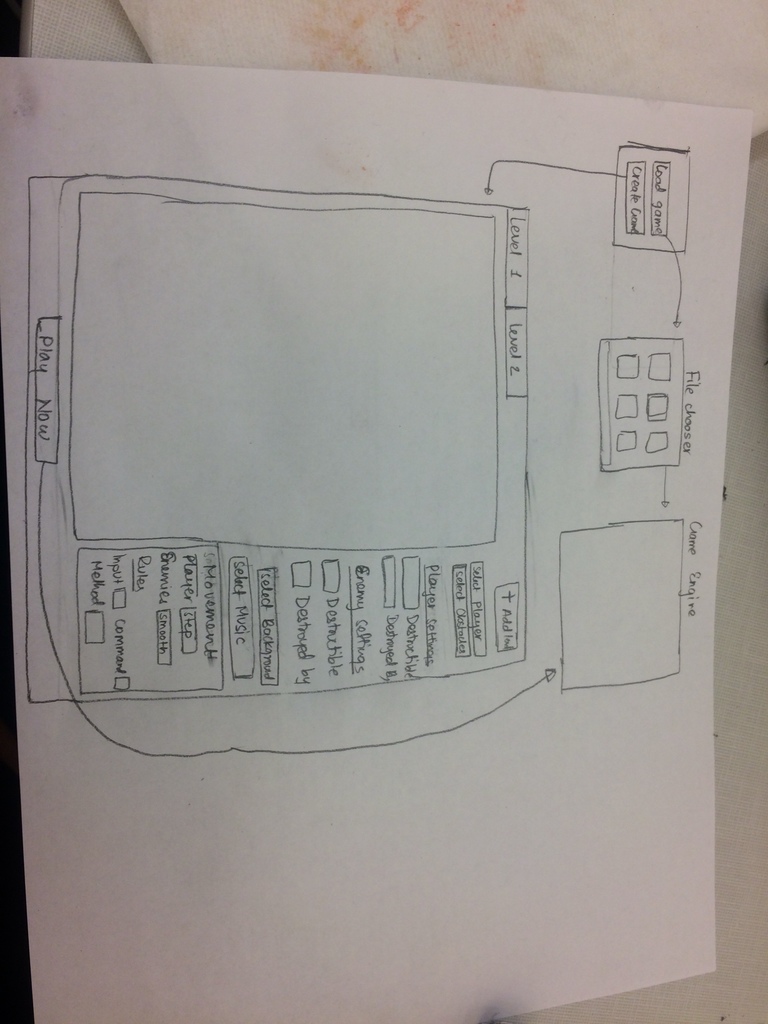 Load game
Create Game
File chooser
Game Engine
Level 1
Level 2
+ Add
Select Player
Select Obstacles
Player settings
Destructible
Destroyed By
Enemy settings
Destructible
Destroyed by
Select Background
Select Music
Movement
Player Step
Enemies smooth
Rules
Input Command
Method
Play Now